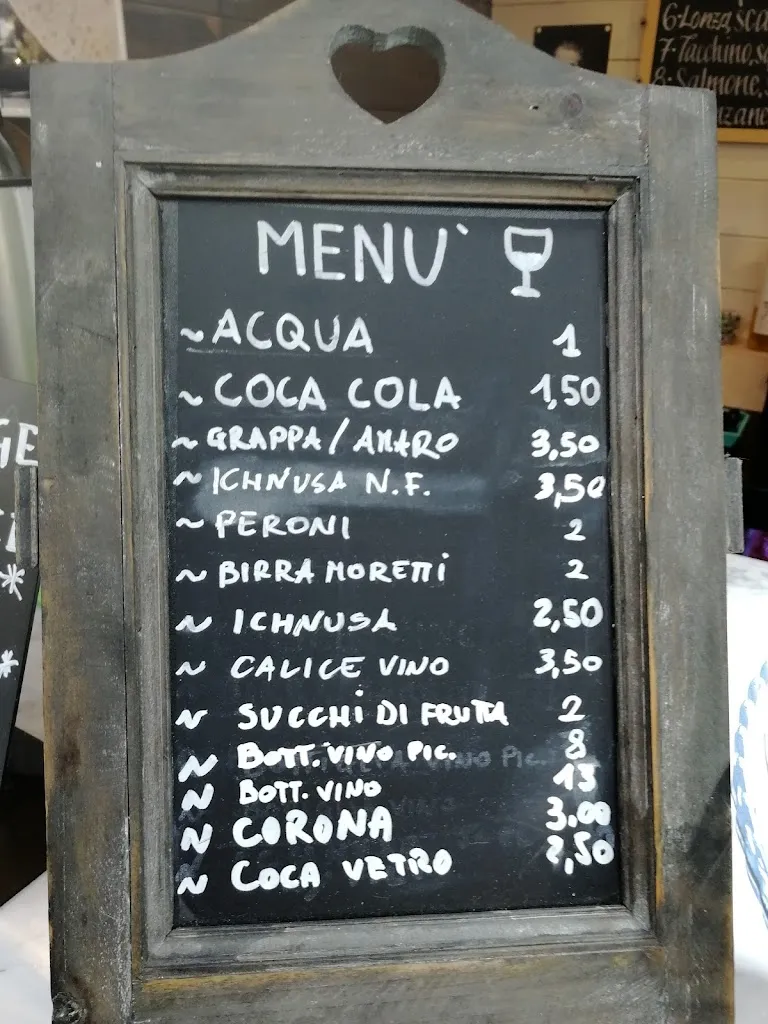 6-Lonza, sca
7-Tacchino, s
8-Salmone,
MENU`
~ ACQUA 1
~ COCA COLA 1,50
~ GRAPPA/AMARO 3,50
~ ICHNUSA N.F. 3,50
~ PERONI 2
~ BIRRA MORETTI 2
~ ICHNUSA 2,50
~ CALICE VINO 3,50
~ SUCCHI DI FRUTTA 2
~ BOTT. VINO PIC. 8
~ BOTT. VINO 13
~ CORONA 3.00
~ COCA VETRO 2,50